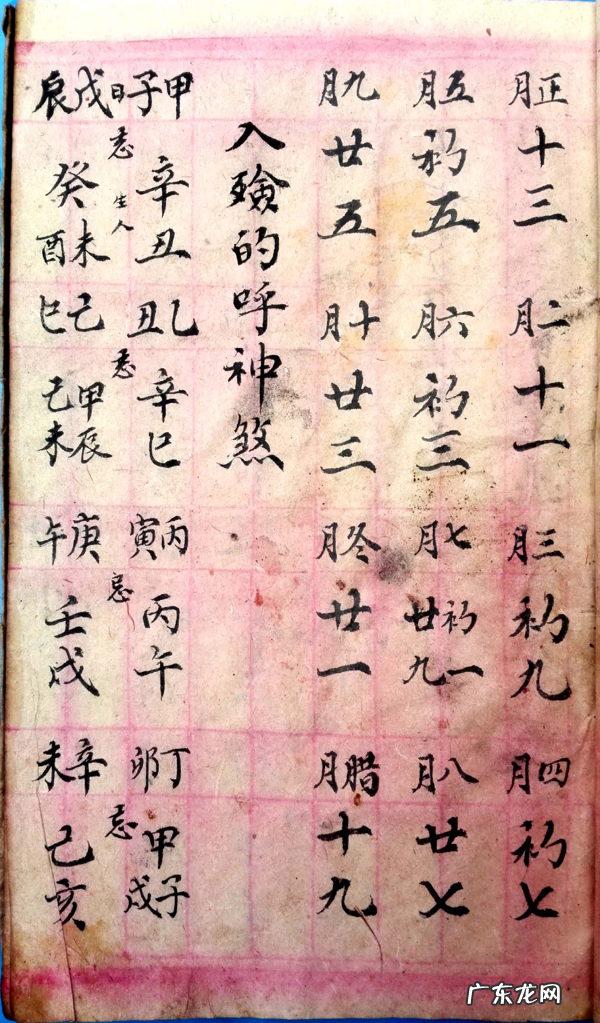 正月十三 二月十一 三月初九 四月初七
五月初五 六月初三 七月初一廿九 八月廿七
九月廿五 十月廿三 冬月廿一 腊月十九
入殮的呼神煞
甲子辛丑 乙丑辛巳 丙寅丙午 丁卯甲子戌
日忌生人 忌 忌 忌
戊辰癸未酉 己巳甲辰己未 庚午壬戌 辛未己亥
广东龙网